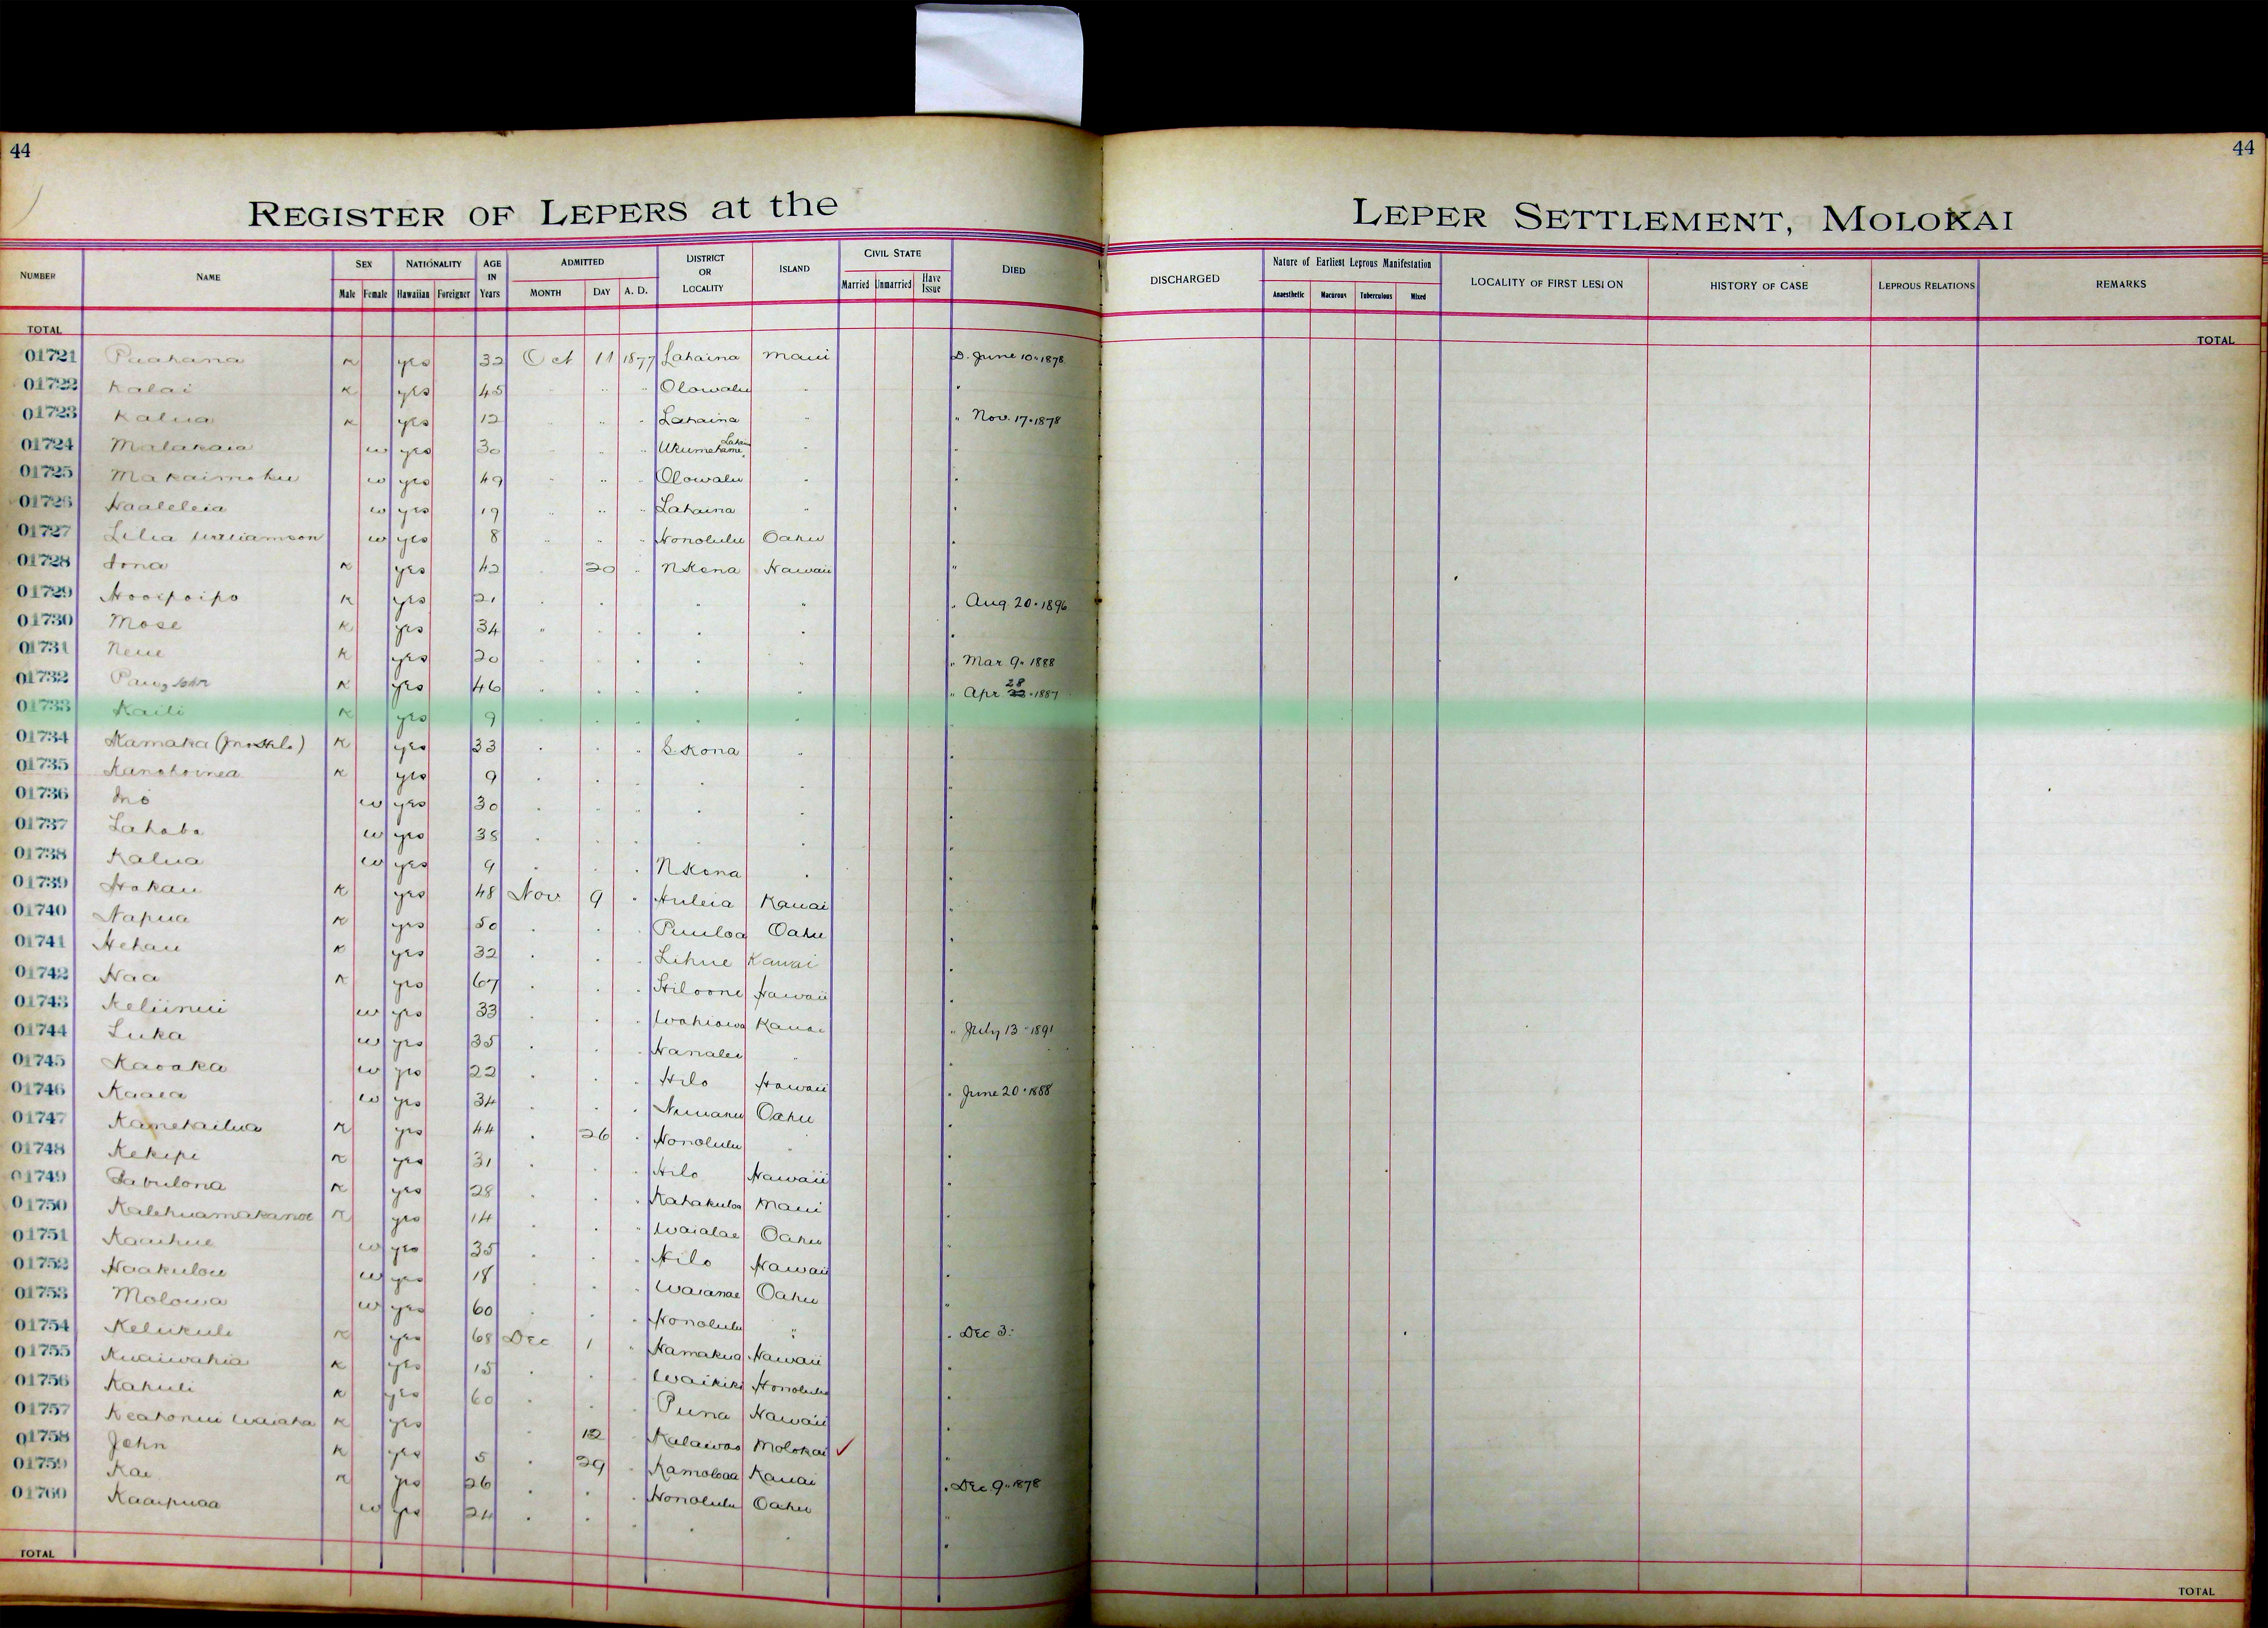 44
44
REGISTER OF LEPERS at the LEPER SETTLEMENT, MOLOKAI
NUMBER NAME SEX Male Female NATIONALITY Hawaiian Foreigner AGE IN Years ADMITTED MONTH DAY A. D. DISTRICT OR LOCALITY ISLAND CIVIL STATE Married Unmarried Have Issue DIED DISCHARGED Nature of Earliest Leprous Manifestation Anaesthetic Macurous Tuberculous Mixed LOCALITY OF FIRST LESION HISTORY OF CASE LEPROUS RELATIONS REMARKS
TOTAL TOTAL
01721 Puahana K yes 32 Oct 11 1877 Lahaina Maui D. June 10 " 1878
01722 Kalai K yes 45 " " " Olowalu " "
01723 Kalua K yes 12 " " " Lahaina " " Nov. 17 " 1878
01724 Malakaia w yes 30 " " " Ukumehame, Lahaina " "
01725 Makaimoku w yes 49 " " " Olowalu " "
01726 Haaleleia w yes 19 " " " Lahaina " "
01727 Lilia Williamson w yes 8 " " " Honolulu Oahu "
01728 Iona K yes 42 " 20 " N Kona Hawaii "
01729 Hooipoipo K yes 21 " " " " " Aug. 20 " 1896
01730 Mose K yes 34 " " " " " "
01731 Neue K yes 20 " " " " " " Mar 9 " 1888
01732 John K yes 46 " " " " " " Apr 28 " 1887
01733 Kaili K yes 9 " " " " " "
01734 Kamaka K yes 33 " " " S. Kona " "
01735 K yes 9 " " " " " "
01736 w yes 30 " " " " " "
01737 w yes 38 " " " " " "
01738 Kalua w yes 9 " " " N Kona " "
01739 Hokau K yes 48 Nov 9 " Huleia Kauai "
01740 Napua K yes 50 " " " Puuloa Oahu "
01741 Hehau K yes 32 " " " Lihue Kauai "
01742 Naa K yes 67 " " " Hiloone Hawaii "
01743 Keliinui w yes 33 " " " Wahiawa Kauai " July 13 " 1891
01744 Luka w yes 35 " " " Hanalei " "
01745 Kaoaka w yes 22 " " " Hilo Hawaii " June 20 " 1888
01746 Kaaia w yes 34 " " " Nuuanu Oahu "
01747 Kamehailua K yes 44 " 26 " Honolulu " "
01748 Kekipi K yes 31 " " " Hilo Hawaii "
01749 Zabulona K yes 28 " " " Kahakuloa Maui "
01750 Kalehuamakanoe K yes 14 " " " Waialae Oahu "
01751 Kaaihue w yes 35 " " " Hilo Hawaii "
01752 Haakulou w yes 18 " " " Waianae Oahu "
01753 Molowa w yes 60 " " " Honolulu " " Dec 3.
01754 Kelikuli K yes 68 Dec 1 " Hamakua Hawaii "
01755 Kuaiwahia K yes 15 " " " Waikiki Honolulu "
01756 Kahuli K yes 60 " " " Puna Hawaii "
01757 Keahonui Waiaha K yes " 12 Kalawao Molokai ✓ "
01758 John K yes 5 " 29 " Kamoloaa Kauai " Dec 9 " 1878
01759 Kai K yes 26 " " " Honolulu Oahu "
01760 Kaaipuaa w yes 24 " " " " " "
TOTAL TOTAL